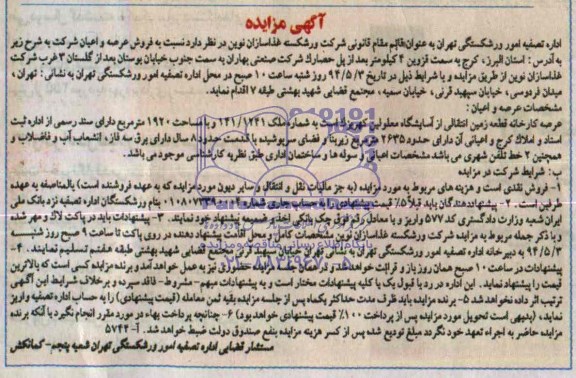 آگهی مزایده
اداره تصفیه امور ورشکستگی تهران به عنوان قائم مقام قانونی شرکت ورشکسته غذاسازان نوین در نظر دارد نسبت به فروش عرصه و اعیان شرکت به شرح زیر
به آدرس : استان البرز، کرج به سمت قزوین ۴ کیلومتر بعد از پل حصارک شرکت صنعتی بهاران به سمت جنوب خیابان بوستان بعد از گلستان ۳ غرب شرکت
غذاسازان نوین از طریق مزایده و با شرایط ذیل در تاریخ ۹۴/۵/۳ روز شنبه ساعت ۱۰ صبح در محل اداره تصفیه امور ورشکستگی تهران به نشانی : تهران ،
میدان فردوسی ، خیابان سپهبد قرنی ، خیابان سمیه ، مجتمع قضایی شهید بهشتی طبقه ۷ اقدام نماید.
مشخصات عرصه و اعیان :
عرصه کارخانه قطعه زمین انتقالی از آسایشگاه معلولین کهریزک است به شماره ملک ۲۴۱/۱۲۴۱ و با مساحت ۱۹۲۰ مترمربع دارای سند رسمی از اداره ثبت
اسناد و املاک کرج و اعیانی آن دارای حدود ۲۶۳۵ مترمربع زیربنا و فضای سرپوشیده با قدمت حدود ۸ سال دارای برق سه فاز، انشعاب آب و فاضلاب و
همچنین ۲ خط تلفن شهری می باشد مشخصات اعیانی و سوله ها و ساختمان اداری طبق نظریه کارشناسی موجود می باشد.
ب : شرایط شرکت در مزایده
۱- فروش نقدی است و هزینه های مربوط به مورد مزایده (به جز مالیات نقل و انتقال و سایر دیون مورد مزایده که به عهده فروشنده است) بالمناصفه به عهده
طرفین است. ۲- پیشنهاددهندگان باید قبلاً ۵٪ قیمت پیشنهادی را به حساب جاری شماره بنام اداره تصفیه نزد بانک ملی
ایران شعبه وزارت دادگستری کد ۵۷۷ واریز و یا معادل رقم فوق چک بانکی اخذ و ضمیمه پیشنهاد خود نمایند. ۳- پیشنهادات باید در پاکت لاک و مهر شده
و با ذکر جمله مربوط به مزایده شرکت ورشکسته غذاسازان نوین مشخصات کامل و محل اقامت پیشنهاد دهنده در روی پاکت تا ساعت ۹ صبح روز شنبه
۹۴/۵/۳ به دبیرخانه اداره تصفیه امور ورشکستگی تهران به نشانی تهران خیابان سپهبد قرنی مجتمع قضایی شهید بهشتی طبقه هفتم تسلیم نمایند. ۴-
پیشنهادات در ساعت ۱۰ صبح همان روز باز و قرائت خواهد شد و در همان جلسه مزایده حضوری نیز به عمل خواهد آمد و برنده مزایده کسی است که بالاترین
قیمت را پیشنهاد نماید. این اداره در رد یا قبول یک یا کلیه پیشنهادات مختار است و به پیشنهادات مبهم - مشروط - فاقد سپرده و برخلاف شرایط این آگهی
ترتیب اثر داده نخواهد شد ۵- برنده مزایده باید ظرف مدت حداکثر یکماه پس از جلسه مزایده بقیه ثمن معامله (قیمت پیشنهادی) را به حساب اداره تصفیه واریز
نماید ، (بدیهی است تحویل مورد مزایده پس از پرداخت ۱۰۰٪ قیمت پیشنهادی خواهد بود) ۶- چنانچه پرداخت بهاء در مورد مقرر انجام نگیرد یا آنکه برنده
مزایده حاضر به اجراء تعهد خود نگردد مبلغ تودیع شده پس از کسر هزینه مزایده بنفع صندوق دولت ضبط خواهد شد. آ- ۵۷۴۴
مستشار قضایی اداره تصفیه امور ورشکستگی تهران شعبه پنجم - کمانکش